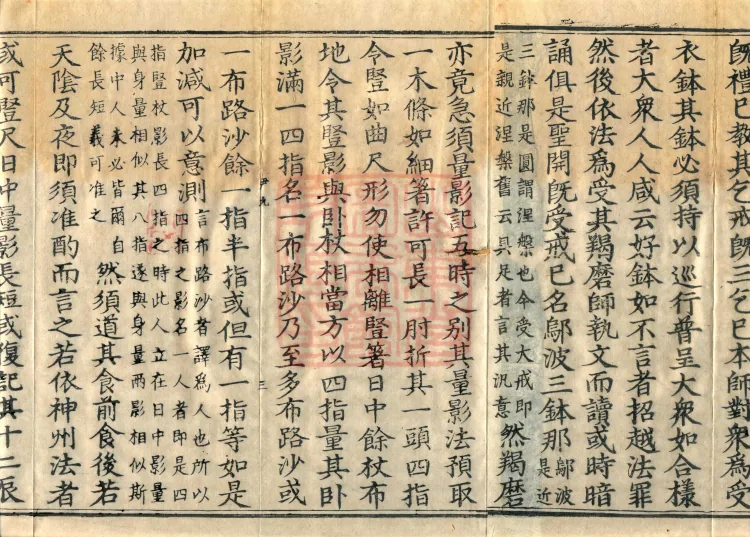 既禮已教其乞戒既三乞已本師對衆爲受
衣鉢其鉢必須持以巡行普呈大衆如合樣
者大衆人人咸云好鉢如不言者招越法罪
然後依法爲受其羯磨師執文而讀或時暗
誦俱是聖開既受戒已名鄔波三鉢那鄔波是近
三鉢那是圓謂涅槃也今受大戒即
是親近涅槃舊云具足者言其汎意然羯磨
亦竟急須量影記五時之別其量影法預取
一木條如細箸許可長一肘折其一頭四指
令豎如曲尺形勿使相離豎箸日中餘杖布
地令其豎影與卧杖相當方以四指量其卧
影滿一四指名一布路沙乃至多布路沙或
一布路沙餘一指半指或但有一指等如是
加減可以意測言布路沙者譯爲人也所以四指之影名一人者即是四
指豎杖影長四指之時此人立在日中影量
與身量相似其八指遂與身量兩影相似斯
據中人未必皆爾自
餘長短義可准之然須道其食前食後若
天陰及夜即須准酌而言之若依神州法者
或可豎尺日中量影長短或復記其十二辰
尹九
三